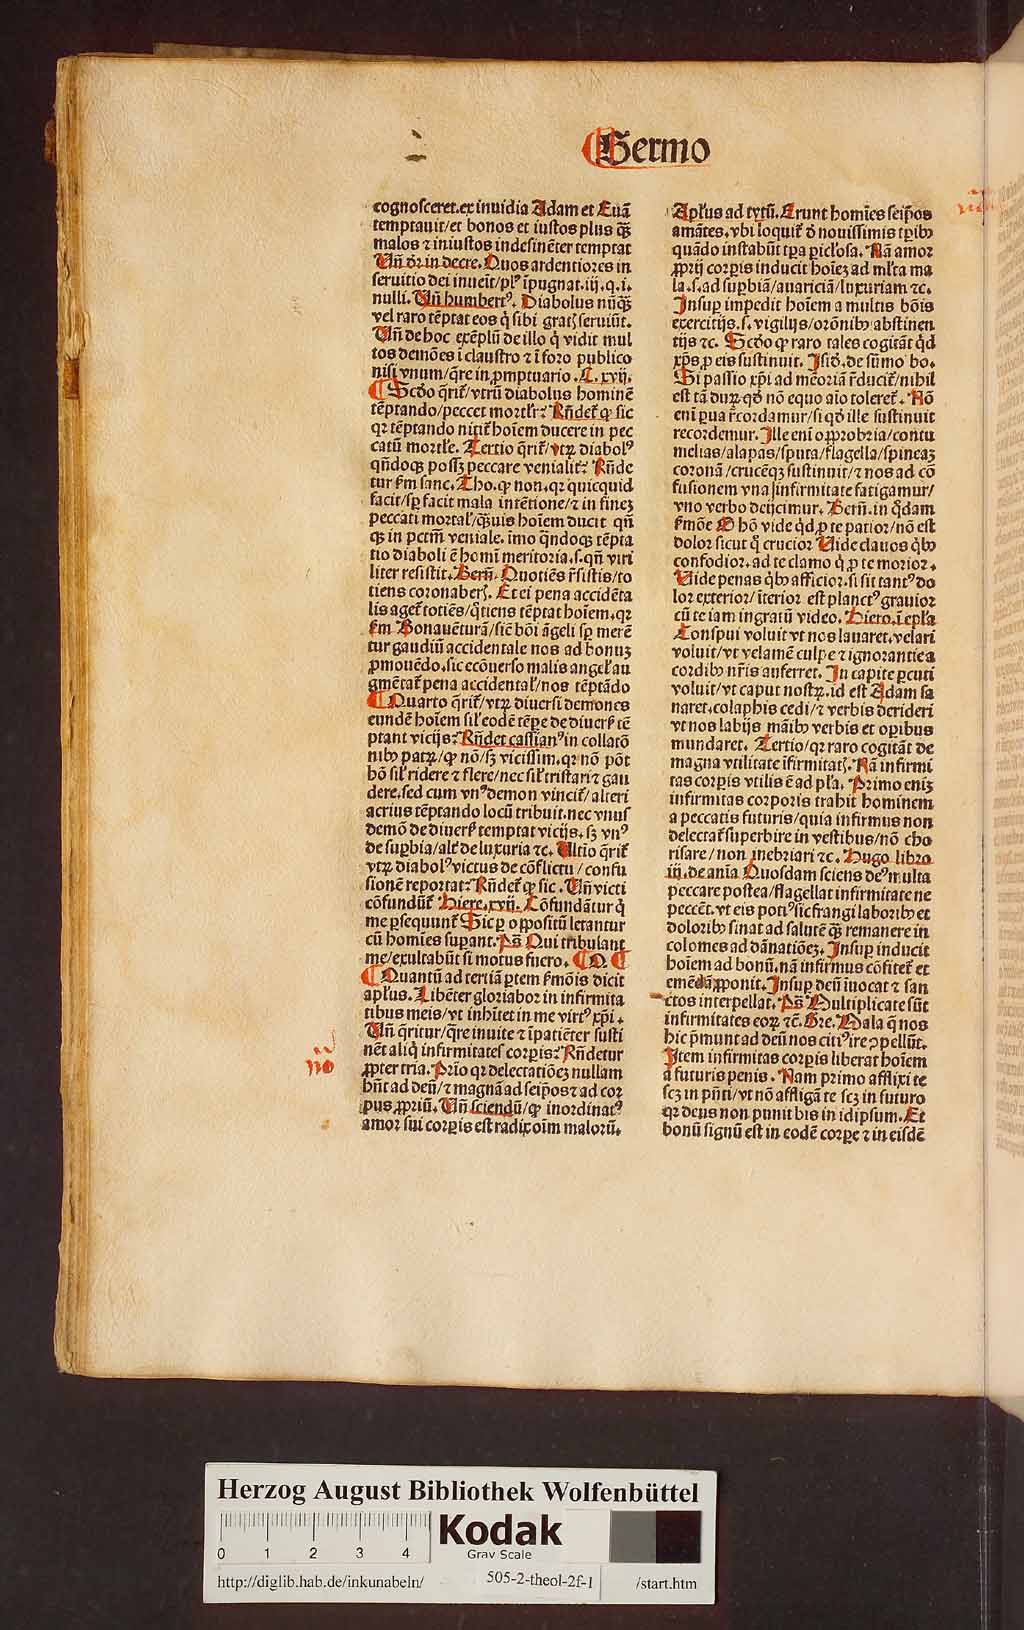 Sermo
cognosceret.ex inuidia Adam et Euā
temptauit/et bonos et iustos plus q̄ꝫ
malos ⁊ iniustos indesinēter temptat
Uñ dr̄ in decre. Quos ardentiores in
seruitio dei inueit/pl⁹ īpugnat.iij.q.i.
nulli. Uñ humbert⁹. Diabolus nūq̄ꝫ
vel raro tēptat eos q̇ sibi gratꝭ seruiūt.
Uñ de hoc exēplū de illo q̇ vidit mul
tos demōes ī claustro ⁊ ī foro publico
nisi vnum/q̄re in ꝓmptuario .C. xvij.
¶ Scđo q̄rit᷑/vtrū diabolus hominē
tēptando/peccet mortlr̄? Rñdet᷑ ꝙ sic
qꝛ tēptando nitit᷑ hoīem ducere in pec
catū mortl̄e. Tertio q̄rit᷑/vtꝝ diabol⁹
qñdoqꝫ possꝫ peccare venialit᷑? Rñde
tur ẜm sanc. Tho.ꝙ non.qꝛ quicquid
facit/sꝑ facit mala intētione/⁊ in fineꝫ
peccati mortal̄/q̄ꝫuis hoīem ducit qñ
qꝫ in pctm̄ veniale. imo qñdoqꝫ tēpta
tio diaboli ē homī meritoria.s.qñ viri
liter resistit. Berñ. Quotiēs r̄sistis/to
tiens coronaberꝭ. Et ei pena accidēta
lis aget᷑ totiēs/q̄tiens tēptat hoīem.qꝛ
ẜm Bonauēturā/sic̄ bōi āgeli sꝑ merē
tur gaudiū accidentale nos ad bonuꝫ
ꝓmouēdo.sic ecōuerso malis angel̄ au
gmētat᷑ pena accidental̄/nos tēptādo
¶ Quarto q̄rit᷑/vtꝝ diuersi demones
eundē hoīem sil̄ eodē tēpe de diuerẜ tē
ptant vicijs? Rñdet cassian⁹ in collatō
nibꝫ patꝝ/ꝙ nō/sꝫ vicissim. qꝛ nō pōt
hō sil̄ ridere ⁊ flere/nec sil̄ tristari ⁊ gau
dere.sed cum vn⁹ demon vincit᷑/alteri
acrius tēptando locū tribuit.nec vnus
demō de diuerẜ temptat vicijs. sꝫ vn⁹
de suꝑbia/alt᷑ de luxuria ⁊c. Ultio q̄rit᷑
vtꝝ diabol⁹ victus de cōflictu / confu
sionē reportat? Rñdet᷑ ꝙ sic. Uñ victi
cōfundūt᷑ Hiere.xvij. Cōfundātur q̇
me ꝑsequunt᷑ Sic ꝑ oppositū letantur
cū homīes suꝑant. Pꝰ Qui tribulant
me/exultabūt si motus fuero. ¶ O. ¶
¶ Quantū ad tertiā ꝑtem ẜmōis dicit
apl̄us. Libēter gloriabor in infirmita
tibus meis/vt inhītet in me virt⁹ xp̄i.
Uñ q̄ritur/q̄re inuite ⁊ īpatiēter susti
nēt aliq̇ infirmitates corꝑis? Rñdetur
ꝓpter tria. Prīo qꝛ delectatiōeꝫ nullam
hn̄t ad deū/⁊ magnā ad seipōs ⁊ ad cor
pus ꝓpriū. Uñ sciendū/ꝙ inordinat⁹
amor sui corꝑis est radix oīm maloꝝ.
nō
Apl̄us ad tytū. Erunt homīes seipōs
amātes. vbi loquit᷑ đ nouissimis tꝑibꝫ
quādo instabūt tꝑa ꝑicl̄osa. Nā amor
ꝓprij corꝑis inducit hoīeꝫ ad ml̄ta ma
la.s.ad suꝑbiā/auariciā/luxuriam ⁊c.
Insuꝑ impedit hoīem a multis bōis
exercitijs.s. vigilijs/orōnibꝫ abstinen
tijs ⁊c. Scđo ꝙ raro tales cogitāt q̇d
xp̄s ꝓ eis sustinuit. Isiđ.de sūmo bo.
Si passio xp̄i ad mēoriā r̄ducit᷑/nihil
est tā duꝝ qđ nō equo aīo toleret᷑. Nō
enī ꝑua r̄cordamur/si qđ ille sustinuit
recordemur. Ille enī opprobria/contu
melias/alapas/sputa/flagella/spineaꝫ
coronā/crucēqꝫ sustinuit/⁊ nos ad cō
fusionem vna infirmitate fatigamur/
vno verbo deijcimur. Berñ.in q̇dam
ẜmōe O hō vide q̇d ꝓ te patior/nō est
dolor sicut q̇ crucior Vide clauos q̇bꝫ
confodior. ad te clamo q̇ ꝓ te morior.
Vide penas q̇bꝫ afficior. si sit tant⁹ do
lor exterior/ īterior est planct⁹ grauior
cū te iam ingratū video. Hiero.ī epl̄a
Conspui voluit vt nos lauaret.velari
voluit/vt velamē culpe ⁊ ignorantie a
cordibꝫ nr̄is auferret. In capite ꝑcuti
voluit/vt caput nostꝝ.id est Adam sa
naret.colaphis cedi/⁊ verbis derideri
vt nos labijs māibꝫ verbis et oꝑibus
mundaret. Tertio/qꝛ raro cogitāt de
magna vtilitate ifirmitatꝭ. Nā infirmi
tas corꝑis vtilis ē ad pl̄a. Primo eniꝫ
infirmitas corporis trahit hominem
a peccatis futuris/quia infirmus non
delectat᷑ superbire in vestibus/nō cho
risare/non inebriari ⁊c. Hugo libro
iij.de aīa Quosdam sciens de⁹ multa
peccare postea/flagellat infirmitate ne
peccēt.vt eis poti⁹ sit frangi laboribꝫ et
doloribꝫ sinat ad salutē q̄ꝫ remanere in
colomes ad dānatiōeꝫ. Insuꝑ inducit
hoīem ad bonū.nā infirmus cōfitet᷑ et
emēdā ꝓponit. Insuꝑ deū iuocat ⁊ san
ctos interpellat. Pꝰ Multiplicate sūt
infirmitates eoꝝ ⁊c. Gre. Mala q̄ nos
hic p̄munt ad deū nos citi⁹ ire ꝯpellūt.
Item infirmitas corꝑis liberat hoīem
a futuris penis. Nam primo afflixi te
scꝫ in pn̄ti/vt nō affligā te scꝫ in futuro
qꝛ deus non punit bis in idipsum. Et
bonū signū est in eodē corꝑe ⁊ in eisdē
Herzog August Bibliothek Wolfenbüttel
0 1 2 3 4
Kodak
Gray Scale
http://diglib.hab.de/inkunabeln/
505-2-theol-2f-1
/start.htm